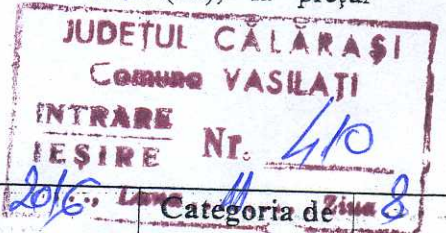 prețul
JUDEȚUL CĂLĂRAȘI
Comuna VASILAȚI
INTRARE
IEȘIRE Nr. 410
2016, Luna 11 Ziua 8
Categoria de